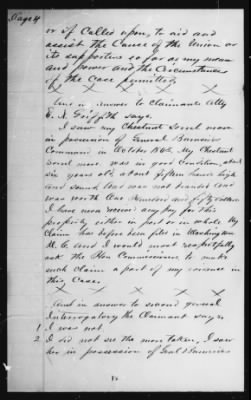 Page 4
or if called upon, to aid and
assist the Cause of the Union or
its supporters so far as my means
and power and the Circumstances
of the Case permitted.
X X X X X
And in answer to Claimants Atty
E. N. Griffith says.
I saw my Chestnut Sorrel mare
in possession of General
Command in October 1864, My Chestnut
Sorrel mare was in good Condition, about
six years old, about fifteen hands high
and sound and was not branded and
was worth One Hundred and fifty dollars
I have never received any pay for this
property either in part or in whole. My
Claim has before been filed in Washington
D. C. and I would most respectfully
ask the Hon Commissioners to make
such claim a part of my evidence in
this Case.
X X X X X
And in answer to second general
Interrogatory the Claimant says
1 I was not.
2 I did not see the mare taken, I saw
her in possession of Genl